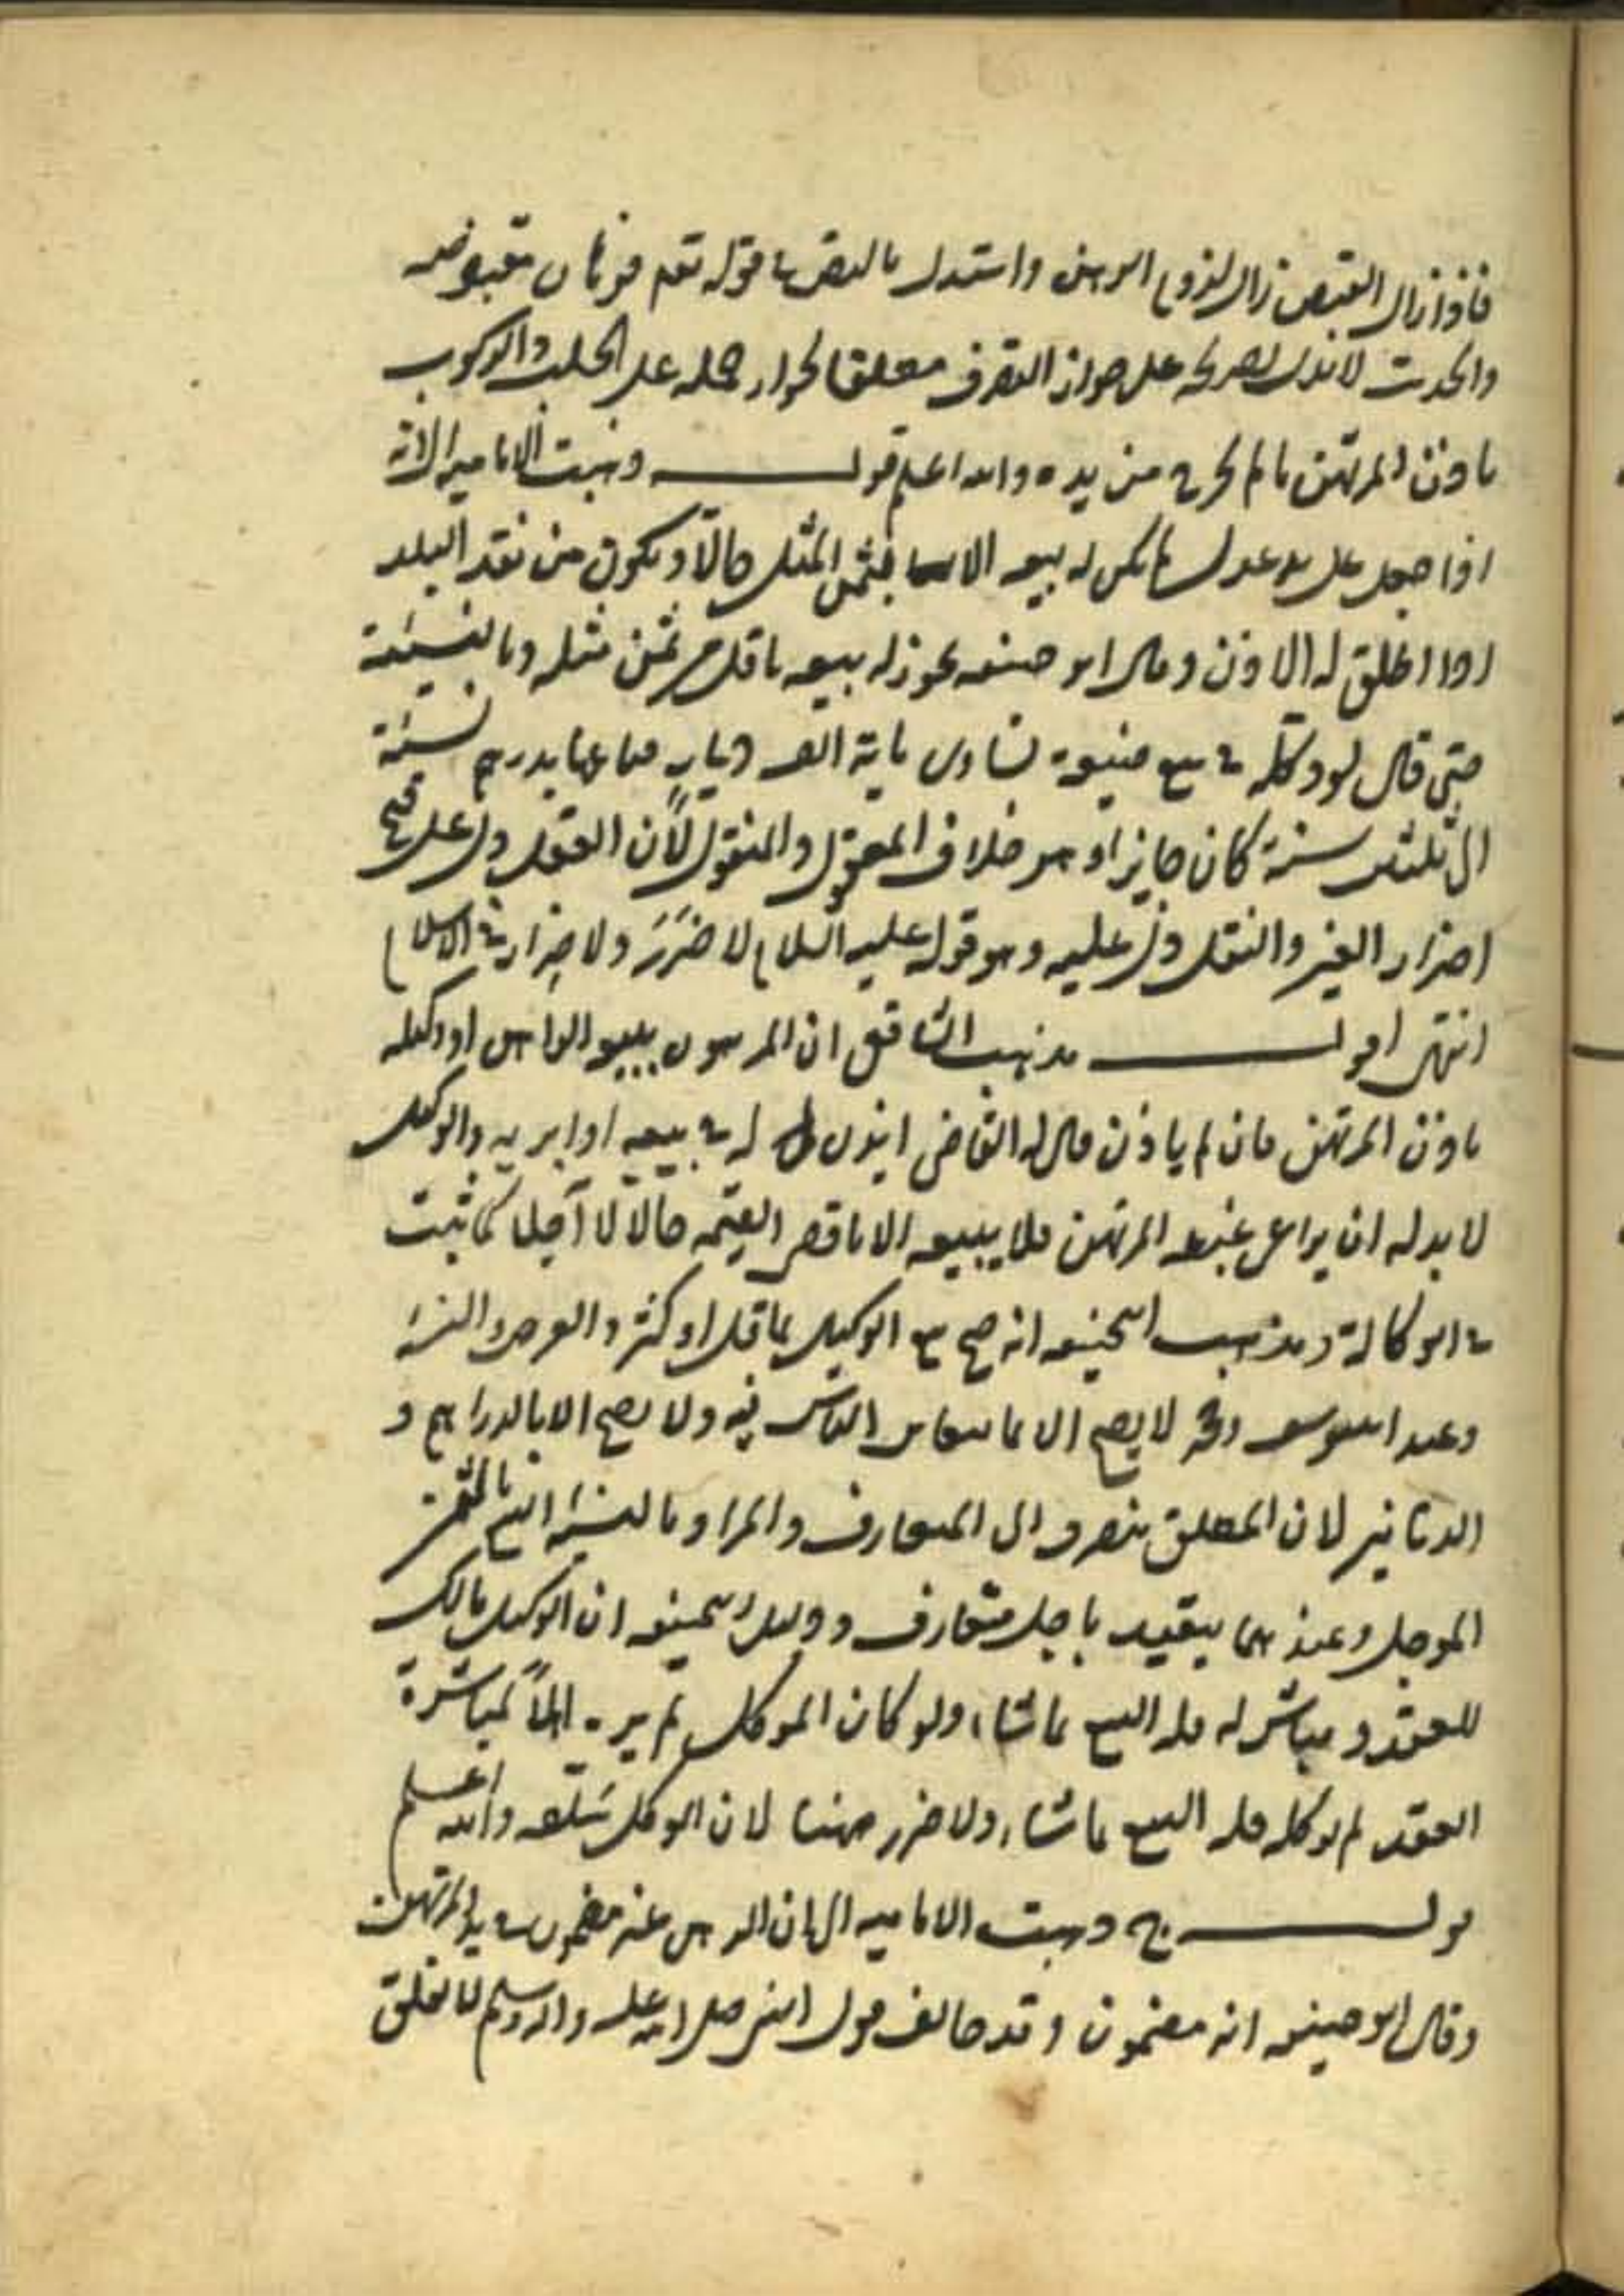 فاذا زال القبض زال لزوم الرهن واستدل بالنص في قوله تعم فرهان مقبوضه
والحديث لا يدل بصريحه على جواز التصرف مطلقا لجواز حمله على الحلب والركوب
باذن المرتهن ما لم يخرج من يده والله اعلم قوله وذهبت الامامية الى انه
اذا جعل على يد عدل لم يكن له بيعه الا بثمن المثل حالا ويكون من نقد البلد
اذا اطلق له الاذن وقال ابو حنيفه يجوز له بيعه باقل من ثمن مثله وبالنسيئة
حتى قال لو وكله في بيع ضيعة تساوى ماية الف دينار فباعها بدرهم نسيئة
الى ثلثين سنة كان جايزا وهو خلاف المعقول والمنقول لأن العقل دل على قبح
اضرار الغير والنقل دل عليه وهو قوله عليه السلام لا ضرر ولا ضرار في الاسلام
انتهى اقول مذهب الشافعى ان المرهون يبيعه الراهن او وكيله
باذن المرتهن فان لم ياذن قال له القاضى ايذن له في بيعه او ابريه والوكيل
لا بد له ان يراعى غبطه المرتهن فلا يبيعه الا باقصى القيمه حالا لا آجلا كما ثبت
في الوكالة ومذهب ابى حنيفه انه صح بيع الوكيل بما قل او كثر والعرض والنسيئة
وعند ابى يوسف ومحمد لا يصح الا بما يتغابن الناس فيه ولا يصح الا بالدراهم و
الدنانير لان المطلق ينصرف الى المتعارف والمراد بالنسيئة البيع بالثمن
الموجل وعندهما يتقيد باجل متعارف ودليل ابى حنيفه ان الوكيل مالك
للعقد ومباشر له فله البيع بما شاء ولو كان الموكل لم يره اهلا لمباشرة
العقد لم يوكله فله البيع بما شاء ولا ضرر ههنا لان الوكيل والله اعلم
قوله ج ذهبت الامامية الى ان الرهن غير مضمون في يد المرتهن
وقال ابو حنيفه انه مضمون وقد خالف قول النبى صلى الله عليه واله وسلم لا يغلق